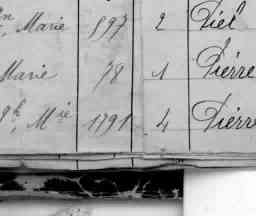 Marie 597 2 Diel
Marie 78 1 Pierre
Mie 1791 4 Pierre